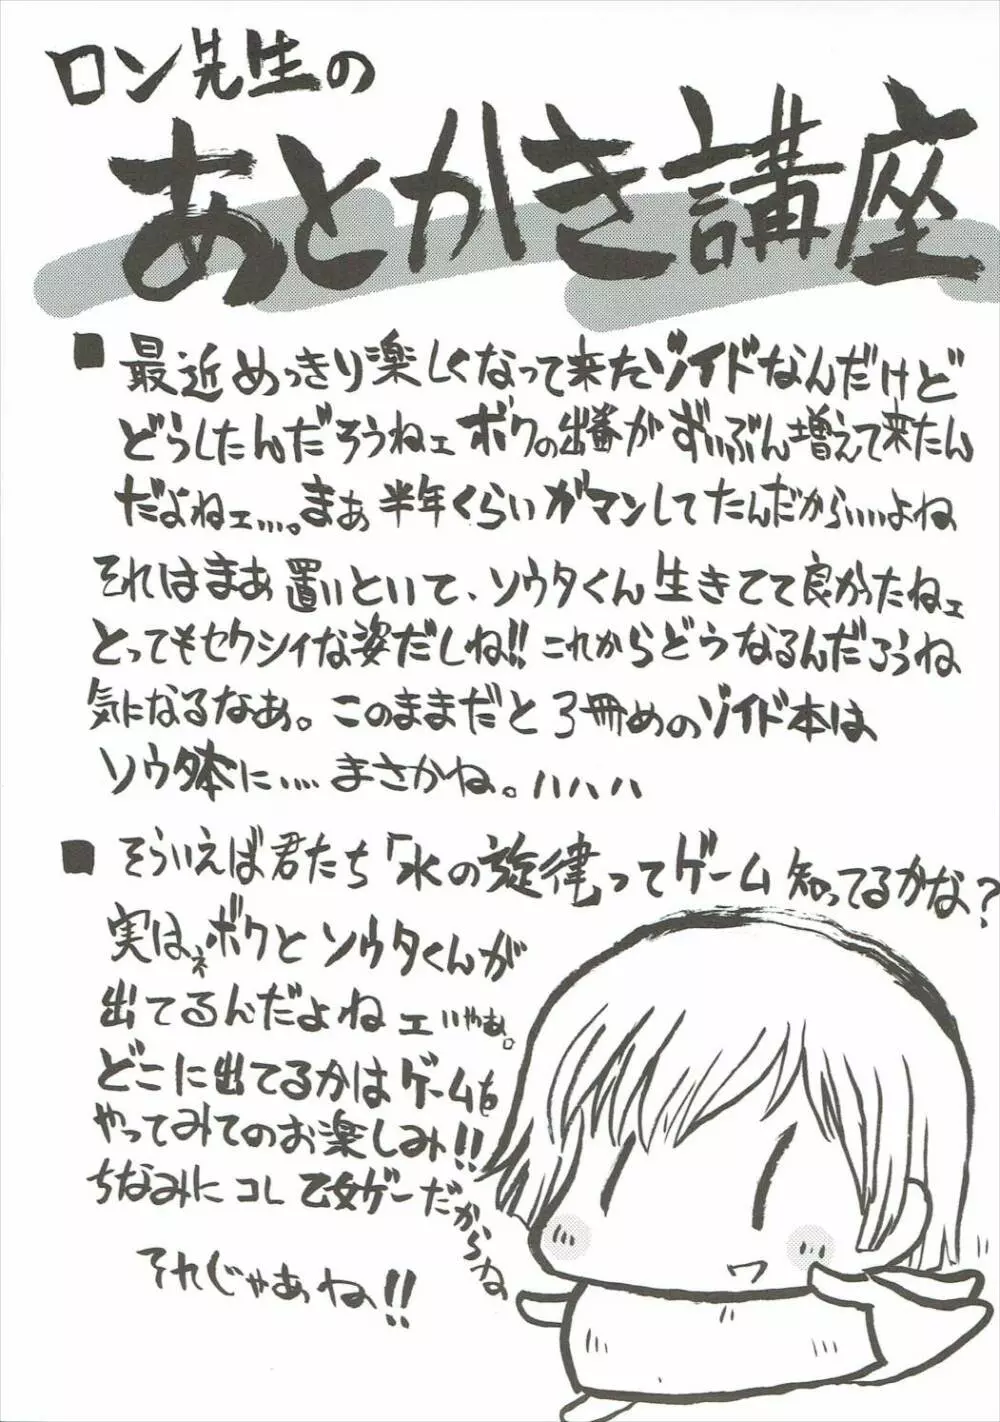 ロン先生の
あとかき講座
■ 最近めっきり楽しくなって来たゾイドなんだけど
どうしたんだろうねェ ボクの出番がずいぶん増えて来たん
だよねェ…。まぁ半年くらいガマンしてたんだから……よね
それはまあ置いといて、ソウタくん生きてて良かたねェ
とってもセクシィな姿だしね!! これからどうなるんだろうね
気になるなあ。このままだと3冊めのゾイド本は
ソウタ本に…… まさかね。ハハハ
■ そういえば君たち「水の旋律」ってゲーム知ってるかな?
実はネボクとソウタくんが
出てるんだよねェいやぁ。
どこに出てるかはゲームを
やってみてのお楽しみ!!
ちなみにコレ乙女ゲーだからね
それじゃあね!!